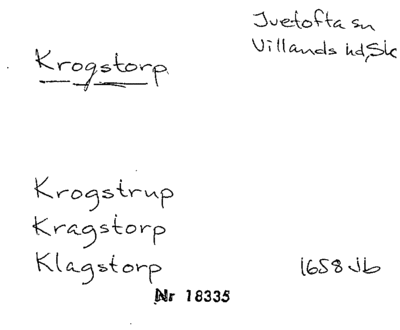 Ivetofta sn
Villands hd, Sk
Krogstorp
Krogstrup
Kragstorp
Klagstorp
1658 Jb
Nr 18335